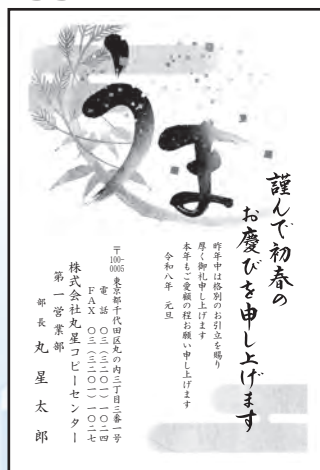 うま
謹んで初春の
お慶びを申し上げます
昨年中は格別のお引立を賜り
厚く御礼申し上げます
本年もご愛顧の程お願い申し上げます
令和八年 元旦
〒100-0005 東京都千代田区丸の内三丁目三番一号
電話 〇三(三二〇一)一〇二四
FAX 〇三(三二〇一)一〇二七
株式会社丸星コピーセンター
第一営業部
部長 丸星太郎